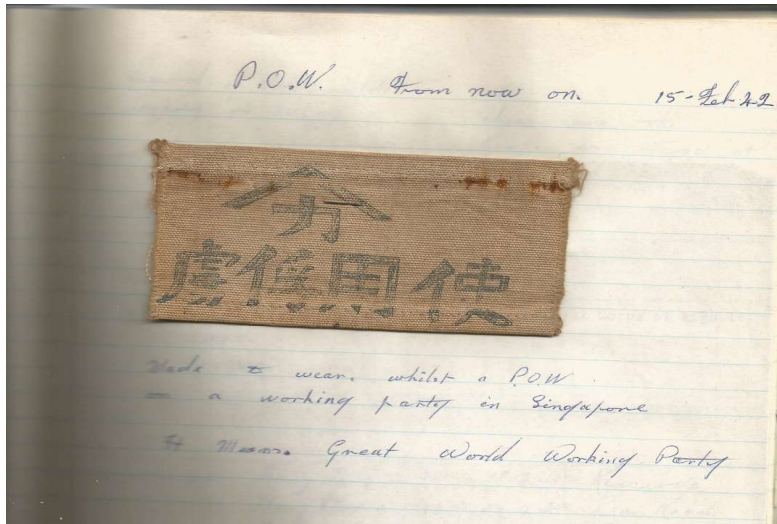 P.O.W. From now on. 15-Feb 42
使用俘虜
Made to wear. whilst a P.O.W.
a working party in Singapore
It Means Great World Working Party